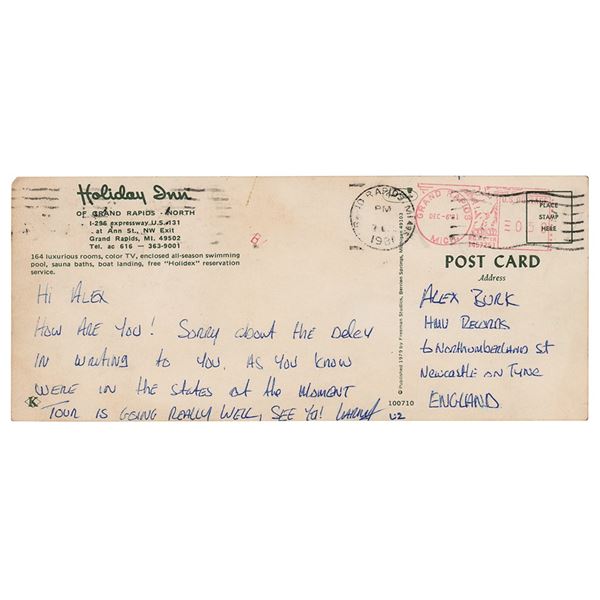 Holiday Inn
OF GRAND RAPIDS - NORTH
I-296 expressway U.S. 131
at Ann St., NW Exit
Grand Rapids, MI. 49502
Tel. ac 616 - 363-9001
164 luxurious rooms, color TV, enclosed all-season swimming
pool, sauna baths, boat landing, free "Holidex" reservation
service.
Hi ALEX
HOW ARE YOU! SORRY about the DELEY
IN WRITING to YOU. AS YOU KNOW
WERE IN the STATES at the MOMENT
TOUR IS GEING REALLY WELL, SEE YA! LARRY
U2
K
© Published 1979 by Freeman Studios, Berrien Springs, Michigan 49103
100710
GRAND RAPIDS
PM
1981
GRAND RAPIDS
DEC-8'81
MICH
PLACE
STAMP
HERE
POST CARD
Address
ALEX BURK
HMV RECORDS
6 NORTHUMBERLAND St
NEWCASTLE ON TYNE
ENGLAND